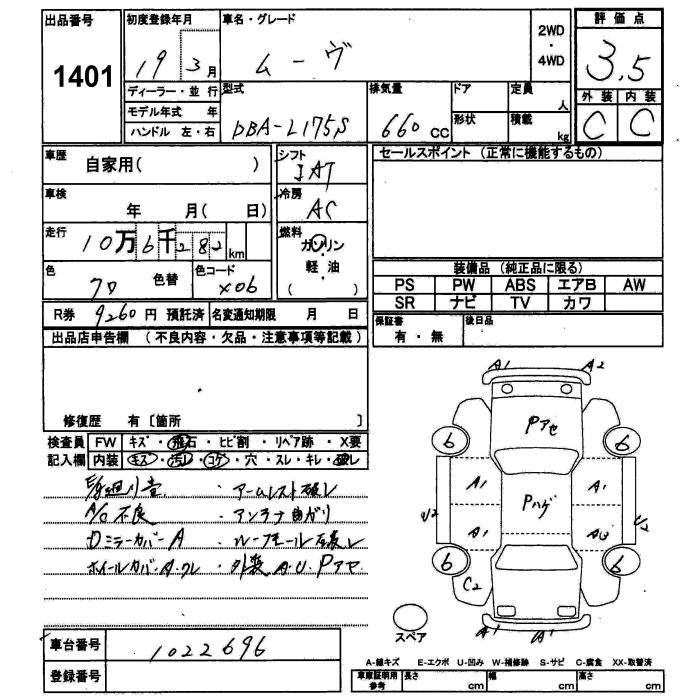 出品番号 初度登録年月 車名・グレード 2WD ・ 4WD 評価点
1401 19 3月 ムーヴ 3.5
ディーラー・並行 型式 排気量 ドア 定員 人 外装 内装
モデル年式 年 DBA-L175S 660cc 形状 積載 kg C C
ハンドル 左・右
車歴 自家用( ) シフト IAT セールスポイント (正常に機能するもの)
車検 年 月( 日) 冷房 AC
走行 10万6千282km 燃料 ガソリン・軽油 ( )
色 クロ 色替 色コード X06
装備品 (純正品に限る)
PS PW ABS エアB AW
SR ナビ TV カワ
R券 9260円 預託済 名変通知期限 月 日 保証書 有・無 後日品
出品店申告欄 (不良内容・欠品・注意事項等記載)
修復歴 有 〔箇所 〕
検査員 FW キズ・飛石・ヒビ割・リペア跡・X要
記入欄 内装 キズ・汚レ・コゲ・穴・スレ・キレ・破レ
・アームレスト破レ
A/C不良 ・アンテナ曲がり
Dミラーカバー A
ホイールカバー・A・クレ ・外装 A・U・Pアセ
A1 A2
Pアセ
6 6
A1 Pハゲ A1
U2 U2
A1
6 6
C2
A1 A1
スペア
車台番号 1022696
登録番号
A-線キズ E-エクボ U-凹み W-補修跡 S-サビ C-腐食 XX-取替済
車庫証明用参考 長さ cm 幅 cm 高さ cm